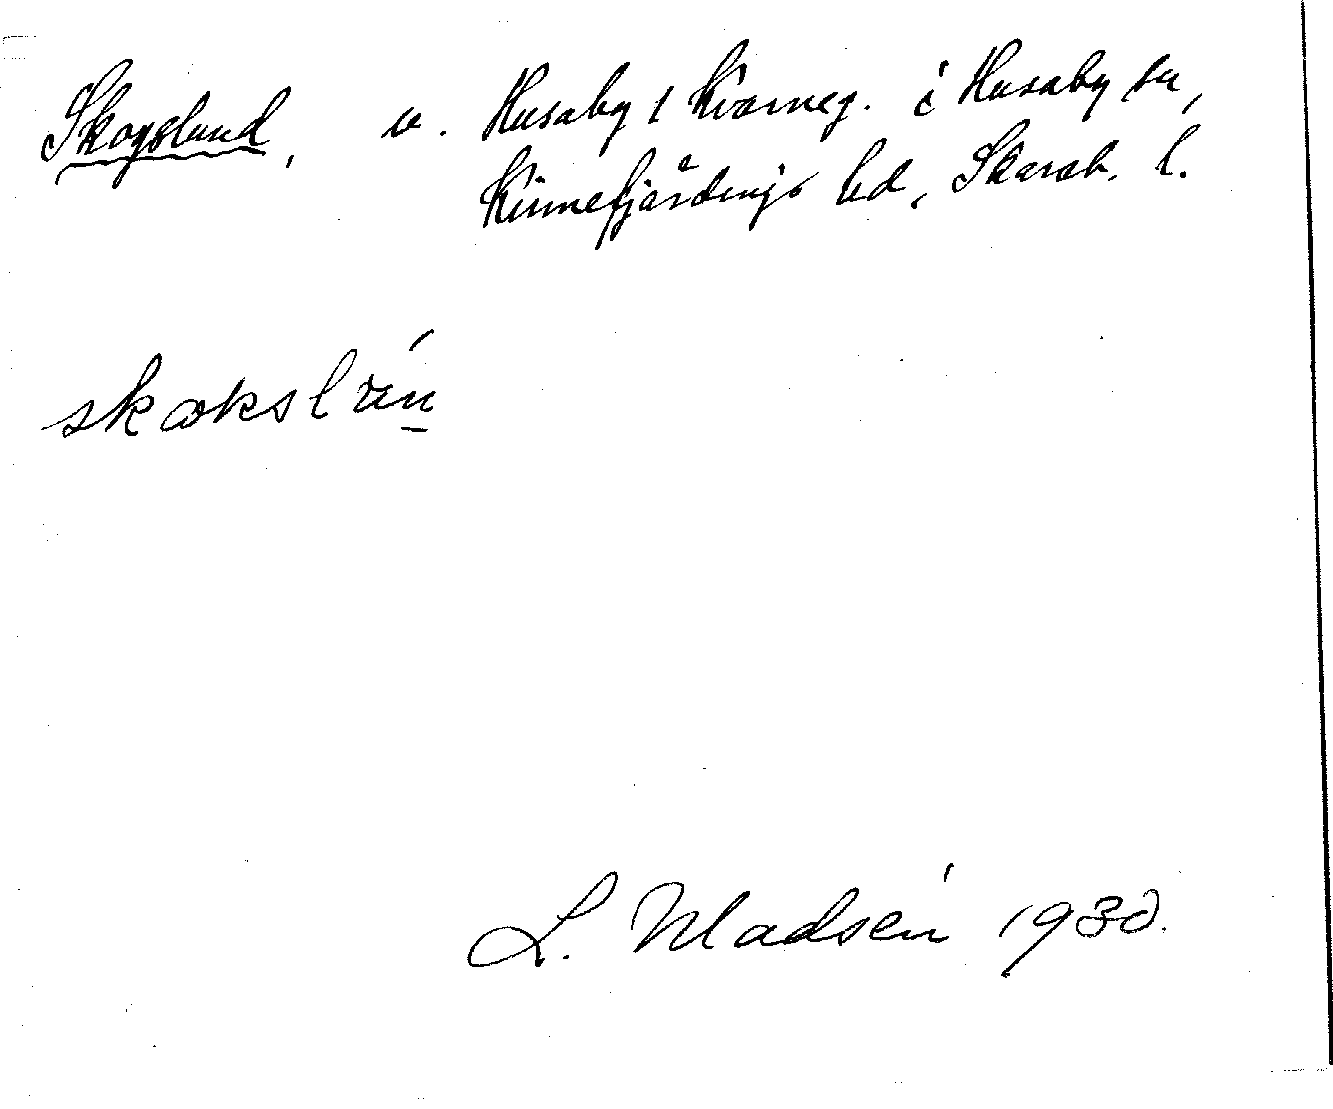 Skogslund, u. Husaby 1 Kvarneg. i Husaby sn,
Kinnefjärdings hd, Skarab. l.
L. Madsén 1930.